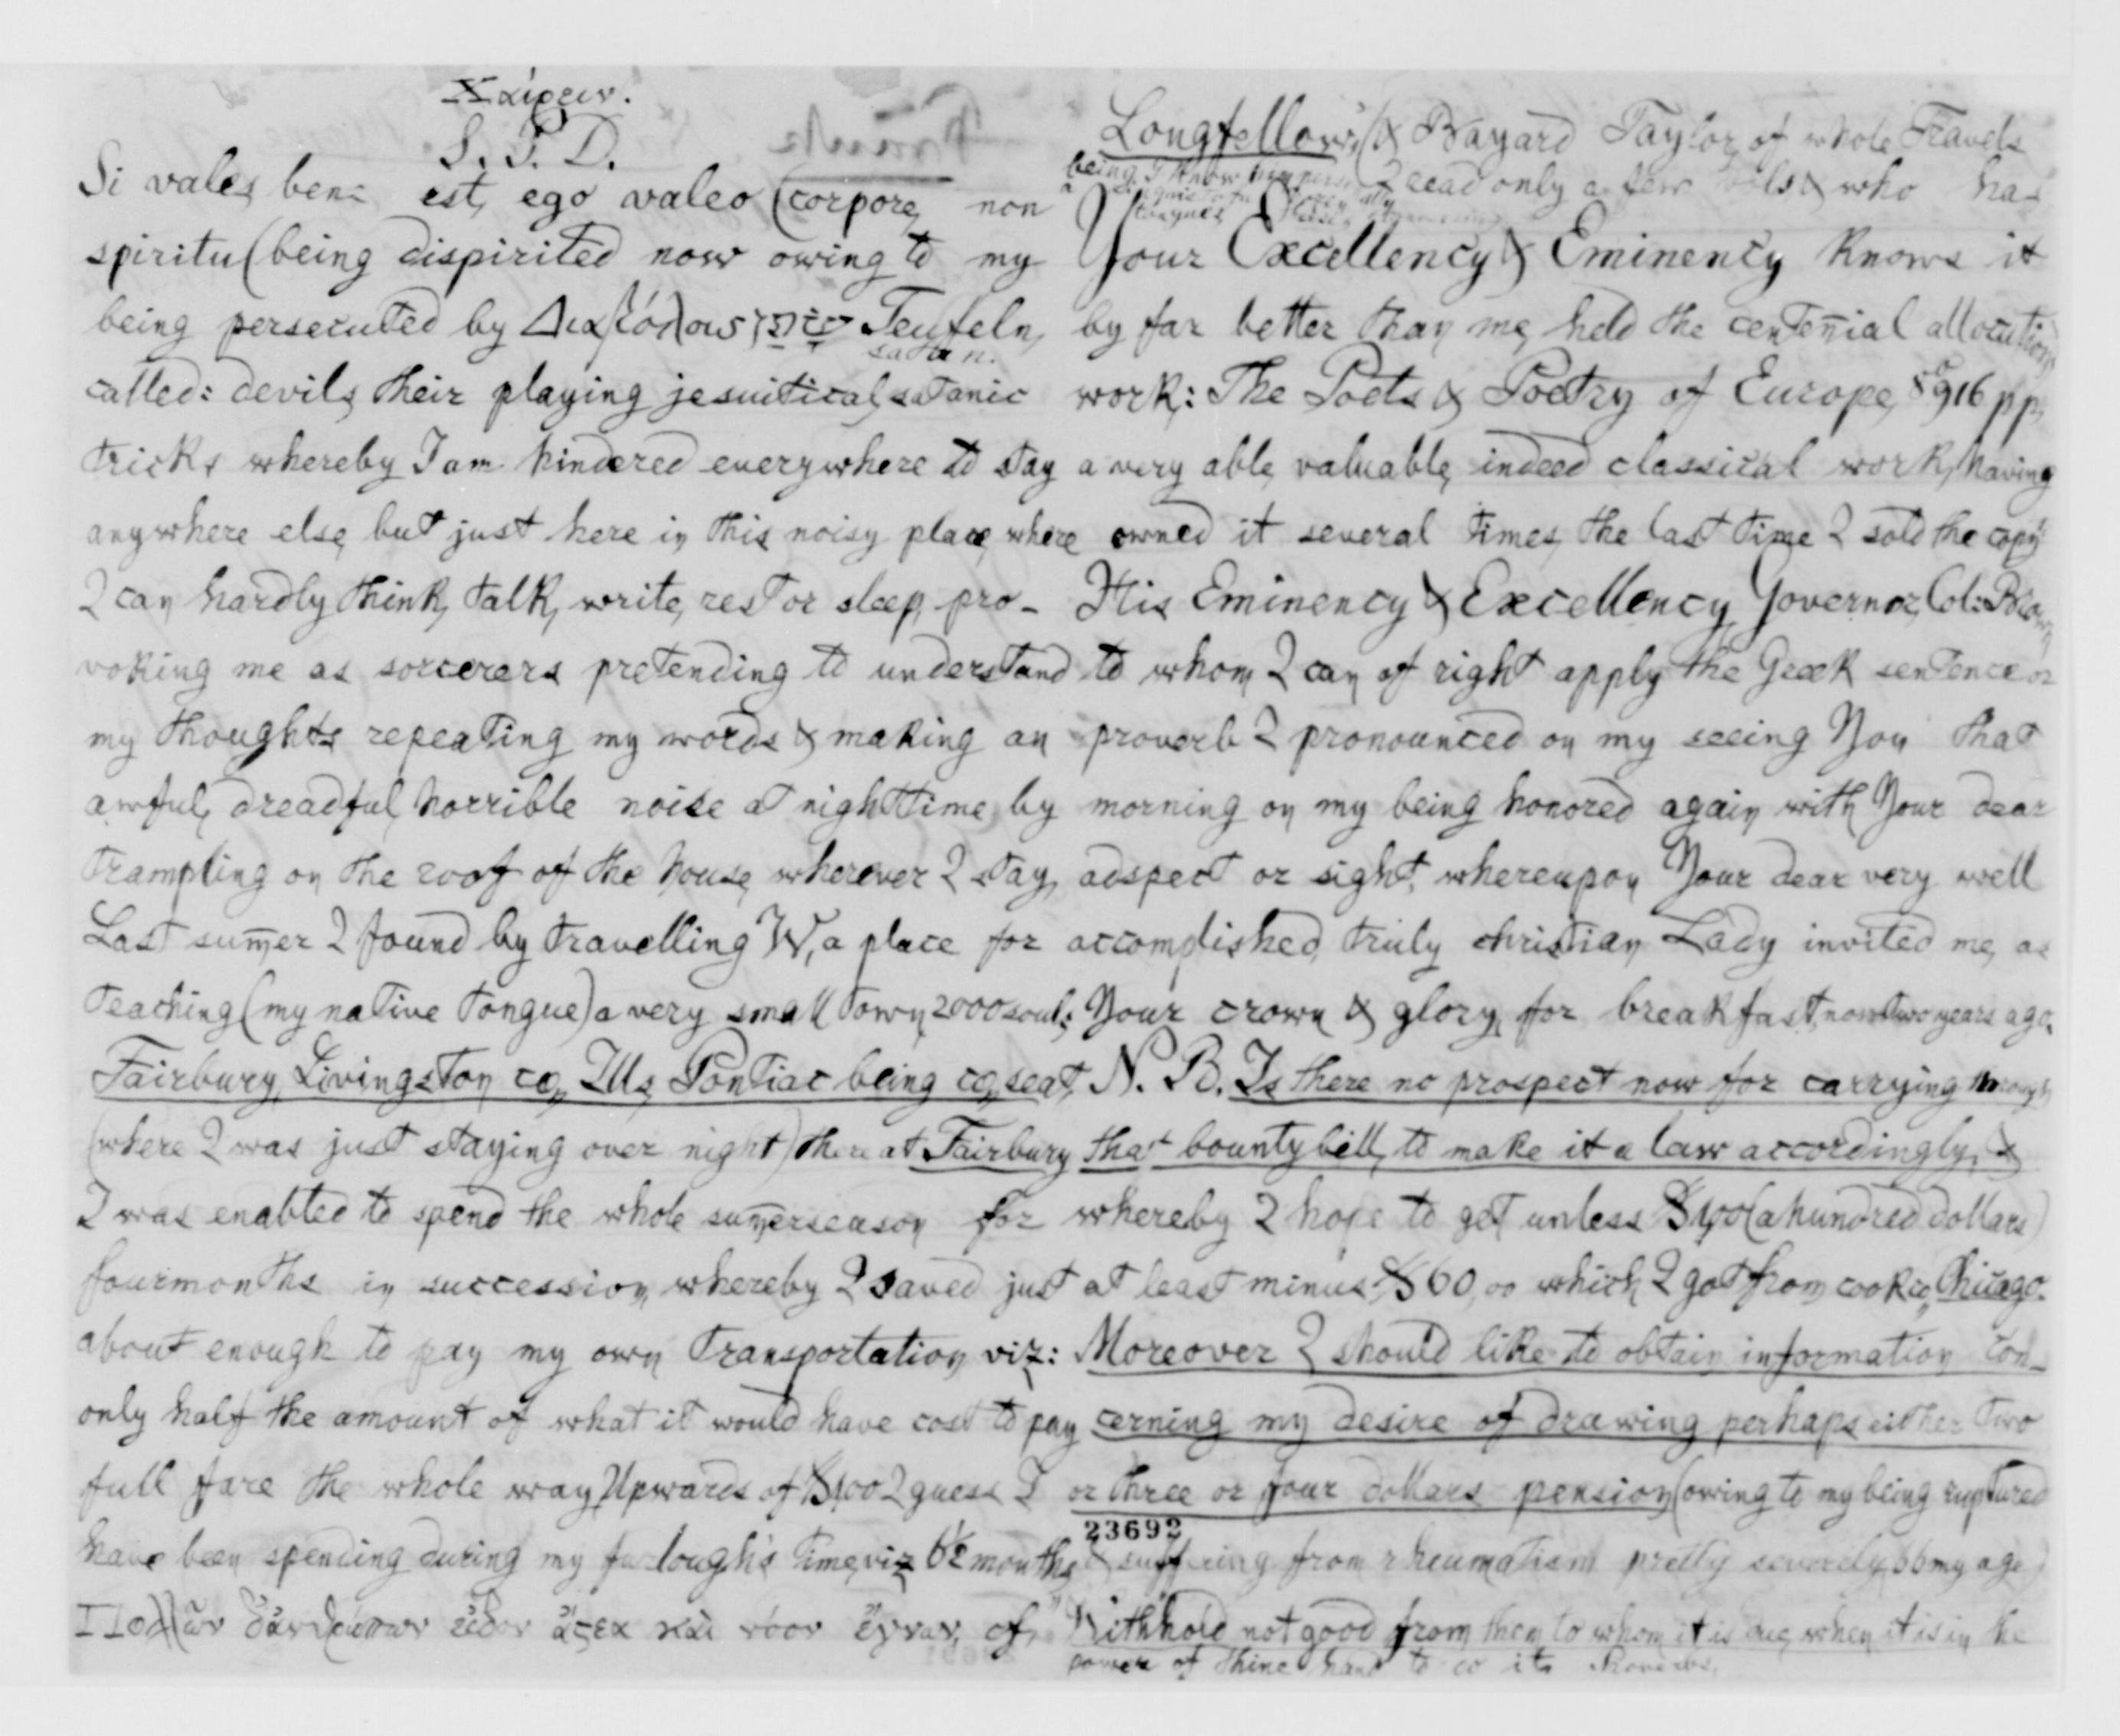 Χαίρειν.
S. P. D.
Si vales, bene est, ego valeo (corpore, non
spiritu (being dispirited now owing to my
being persecuted by Διαβόλοις, Teufeln,
satan.
called: devils, their playing jesuitical, satanic
tricks whereby I am hindered everywhere to stay
anywhere else, but just here in this noisy place, where
I can hardly think, talk, write, rest or sleep, pro-
voking me as sorcerers pretending to understand
my thoughts repeating my words & making an
awful, dreadful, horrible noise at nighttime, by
trampling on the roof of the house, wherever I stay,
Last sum̄er I found by travelling W, a place for
teaching (my native tongue) a very small town, 2000 souls;
Fairbury, Livingston co,, Ills, Pontiac being co,, seat,
(where I was just staying over night) there at Fairbury
I was enabled to spend the whole sum̄erseason for
fourmonths in succession, whereby I saved just
about enough to pay my own transportation, viz:
only half the amount of what it would have cost to pay
full fare the whole way, Upwards of $100 I guess I
have been spending during my furlough's time, viz 6½ months
Πολλῶν δ'ἀνθρώπων ἴδεν ἄςεα καὶ νόον ἔγνων, of,
Longfellow's, (& Bayard Taylor, of whole Travels
being I know him
I read only a few vols & who has
tongues,
Your Excellency & Eminency knows it
by far better than me, held the centen̄ial allocution,
work: The Poets & Poetry of Europe, 8° 916 pp,
a very able, valuable, indeed classical work, having
owned it several times, the last time I sold the copy
His Eminency & Excellency, Governor, Col: Brown,
to whom I can of right apply the Greek sentence or
proverb I pronounced on my seeing You that
morning on my being honored again with Your dear
adspect or sight, whereupon Your dear very well
accomplished, truly christian Lady invited me, as
Your crown & glory, for breakfast, now two years ago.
N. B. Is there no prospect now for carrying through
that bountybill, to make it a law accordingly, &
whereby I hope to get unless $100 (a hundred dollars)
at least minus $60,00 which I got from cook co,, Chicago.
Moreover I should like to obtain information con-
cerning my desire of drawing perhaps either two
or three or four dollars pension, (owing to my being ruptured
23692
& suffering from rheumatism pretty severely, 66 my age)
"Withhold not good from them to whom it is due, when it is in the
power of thine hand to do it. Proverbs.